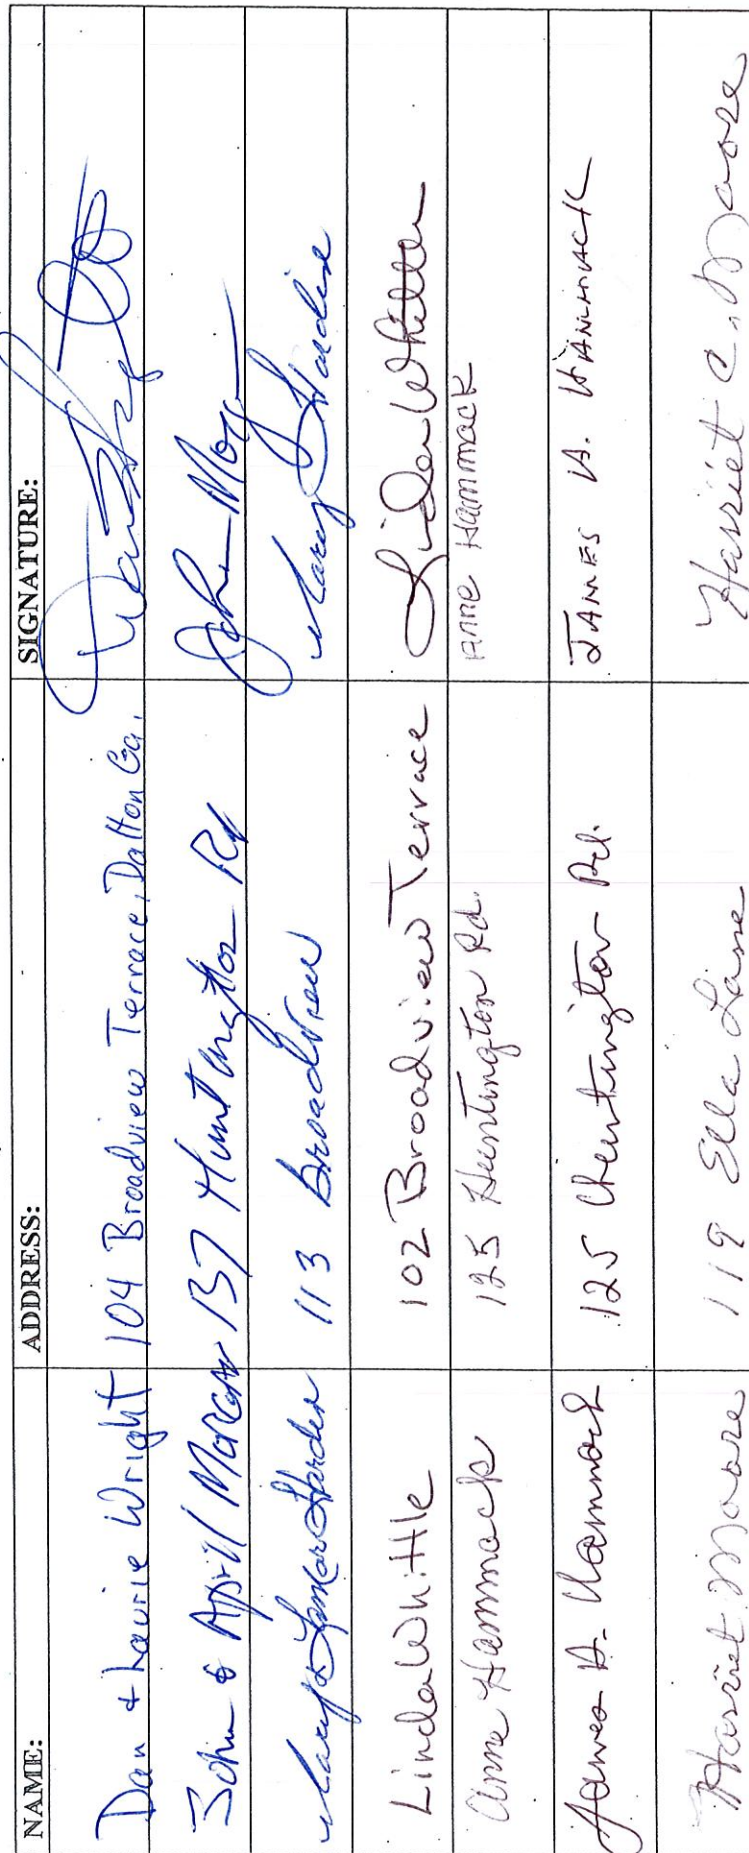 NAME: ADDRESS: SIGNATURE:
Dan + Laurie Wright 104 Broadview Terrace, Dalton Ga.
John & April Morgan 137 Huntington Rd John Mor
Mary & Lamar Hardin 113 Broadview Mary Hardin
Linda Whittle 102 Broadview Terrace Linda Whittle
Anne Hammack 125 Huntington Rd. Anne Hammack
James H. Hammack 125 Huntington Rd. JAMES H. HAMMACK
Harriet Moore 119 Ella Lane Harriet C. Moore